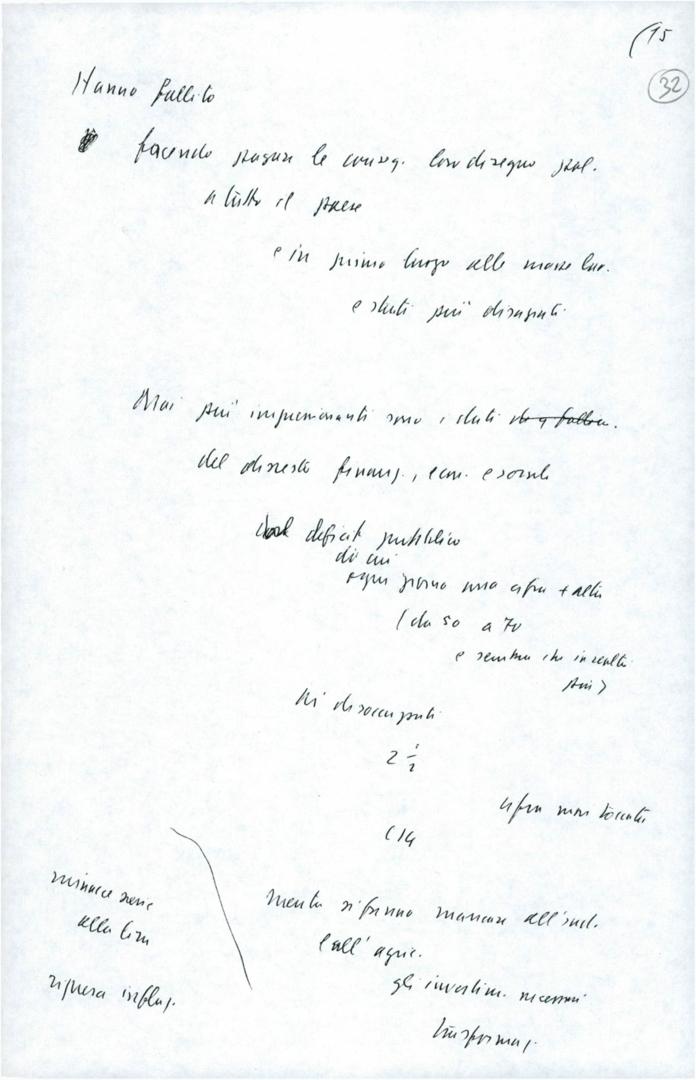 (15
32
Hanno fallito
facendo pagare le conseg. loro disegno pol.
a tutto il paese
e in primo luogo alle masse lav.
e strati più disagiati
Mai più impressionanti sono i dati
del dissesto finanz., econ. e sociale
deficit pubblico
di cui
ogni giorno una cifra + alta
(da 50 a 70
e sembra che in realtà
più)
disoccupati
2 1/2
cifra mai toccata
(14
mentre si fanno mancare all'ind.
e all'agric.
gli investim. necessari
trasformaz.
minacce serie
alla lira
ripresa inflaz.